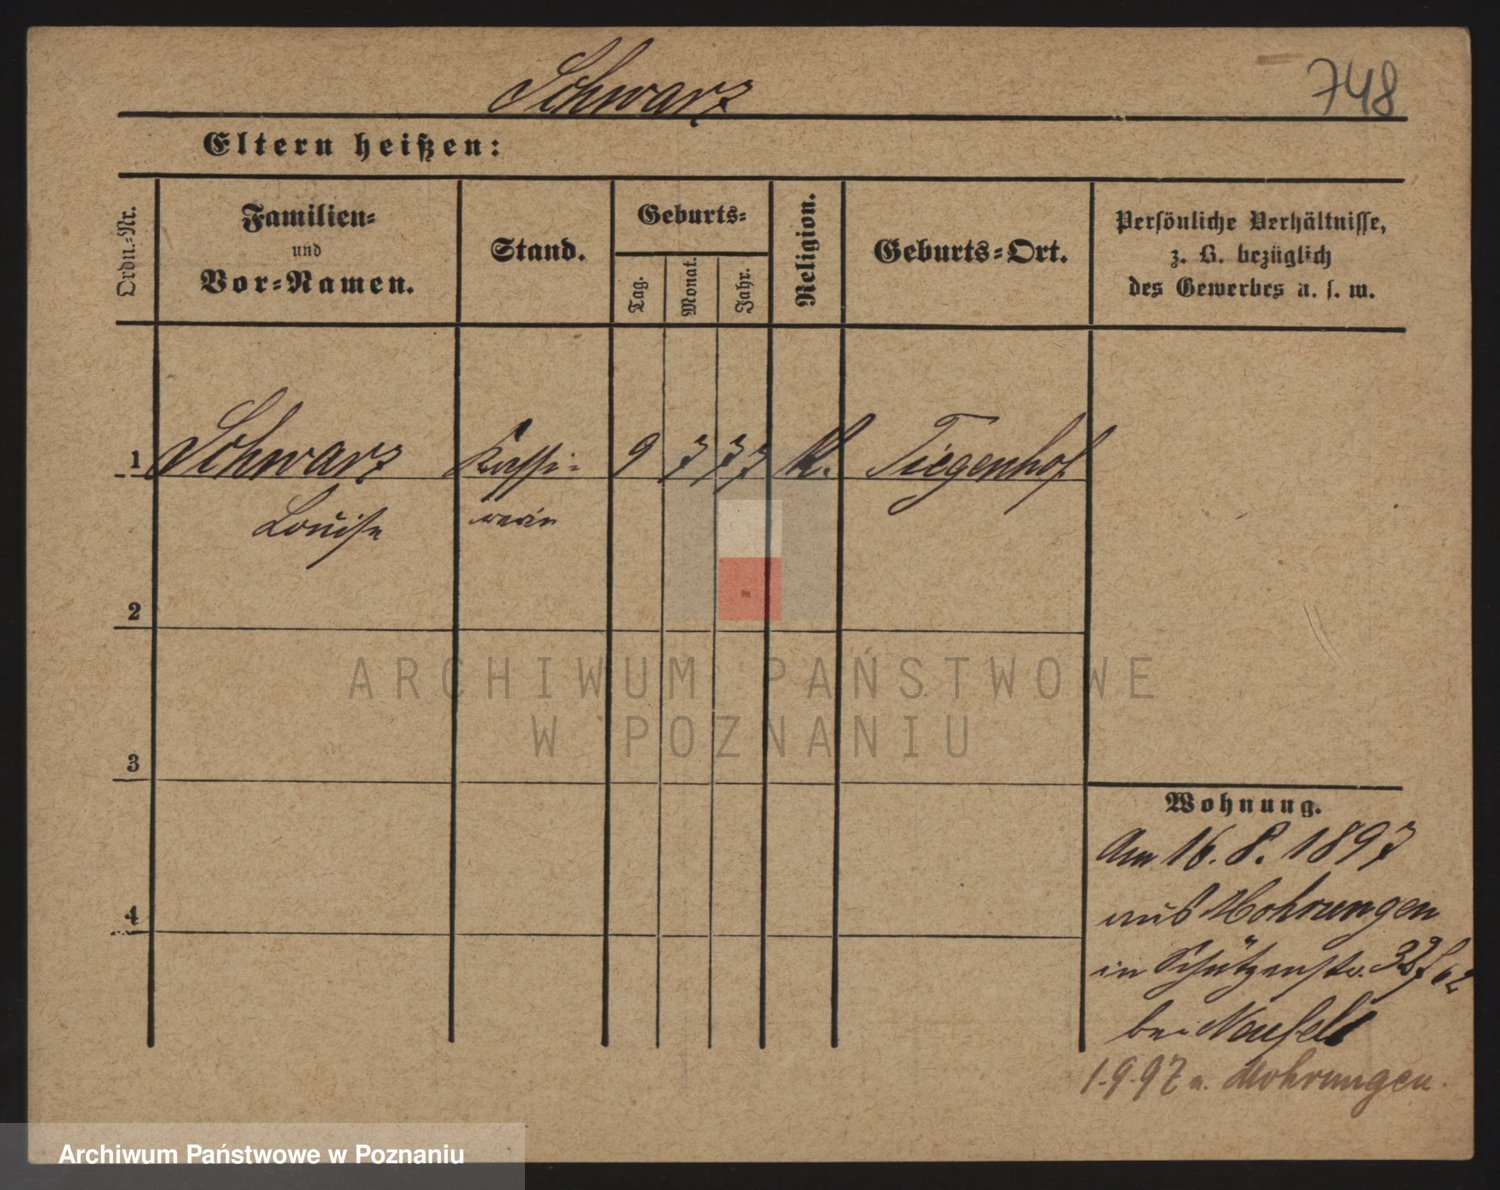 Schwarz
748
Eltern heißen:
Ordn.-Nr.
Familien-
und
Vor-Namen.
Stand.
Geburts-
Tag.
Monat.
Jahr.
Religion.
Geburts-Ort.
Persönliche Verhältnisse,
z. B. bezüglich
des Gewerbes u. s. w.
1 Schwarz Kassi- 9 7 77 k. Tiegenhof
Louise rerin
2
3
4
Wohnung.
Am 16. 8. 1897
aus Mohrungen
in Schützenstr.
bei
1.9.97 n. Mohrungen.
ARCHIWUM PAŃSTWOWE
W POZNANIU
Archiwum Państwowe w Poznaniu